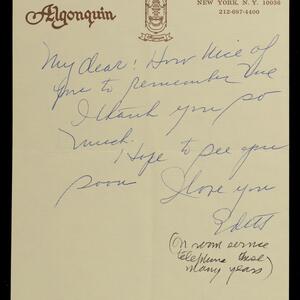 Algonquin
NEW YORK, N.Y. 10036
212-687-4400
My dear! How nice of
you to remember me
I thank you so
much.
Hope to see you
soon I love you
Edith
(In room service
telephone these
many years)